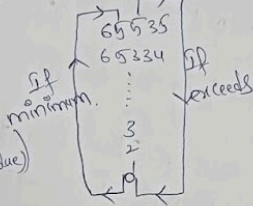 65535
65334
If
minimum.
If
exceeds
3
2
0